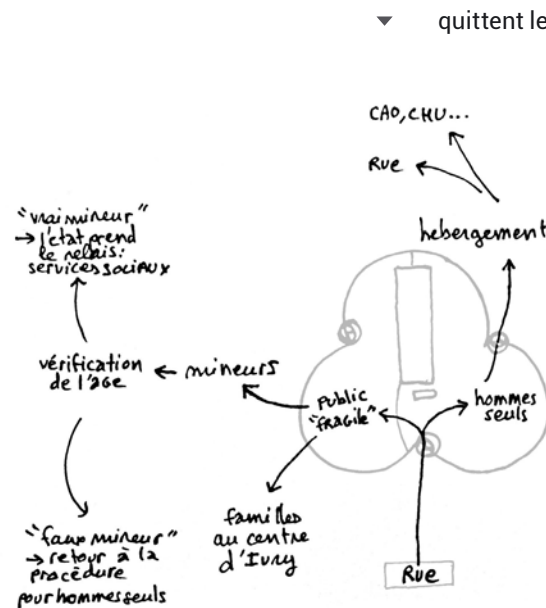 quittent le
CAO, CHU...
Rue
hebergement
"vrai mineur"
→ l'état prend
le relais:
services sociaux
vérification
de l'age
← mineurs
Public
"fragile"
hommes
seuls
familles
au centre
d'Ivry
"faux mineur"
→ retour à la
procédure
pour hommes seuls
Rue